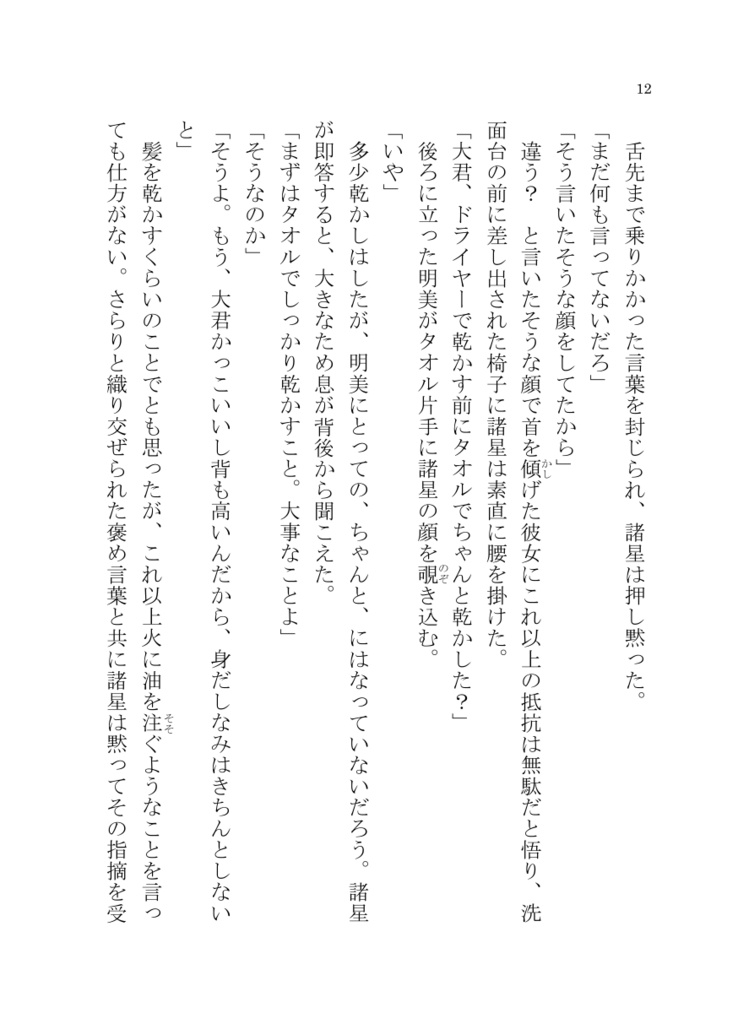 12
　舌先まで乗りかかった言葉を封じられ、諸星は押し黙った。
「まだ何も言ってないだろ」
「そう言いたそうな顔をしてたから」
　違う？　と言いたそうな顔で首を傾げた彼女にこれ以上の抵抗は無駄だと悟り、洗
面台の前に差し出された椅子に諸星は素直に腰を掛けた。
「大君、ドライヤーで乾かす前にタオルでちゃんと乾かした？」
　後ろに立った明美がタオル片手に諸星の顔を覗き込む。
「いや」
　多少乾かしはしたが、明美にとっての、ちゃんと、にはなっていないだろう。諸星
が即答すると、大きなため息が背後から聞こえた。
「まずはタオルでしっかり乾かすこと。大事なことよ」
「そうなのか」
「そうよ。もう、大君かっこいいし背も高いんだから、身だしなみはきちんとしない
と」
　髪を乾かすくらいのことでとも思ったが、これ以上火に油を注ぐようなことを言っ
ても仕方がない。さらりと織り交ぜられた褒め言葉と共に諸星は黙ってその指摘を受
かし
のぞ
そそ